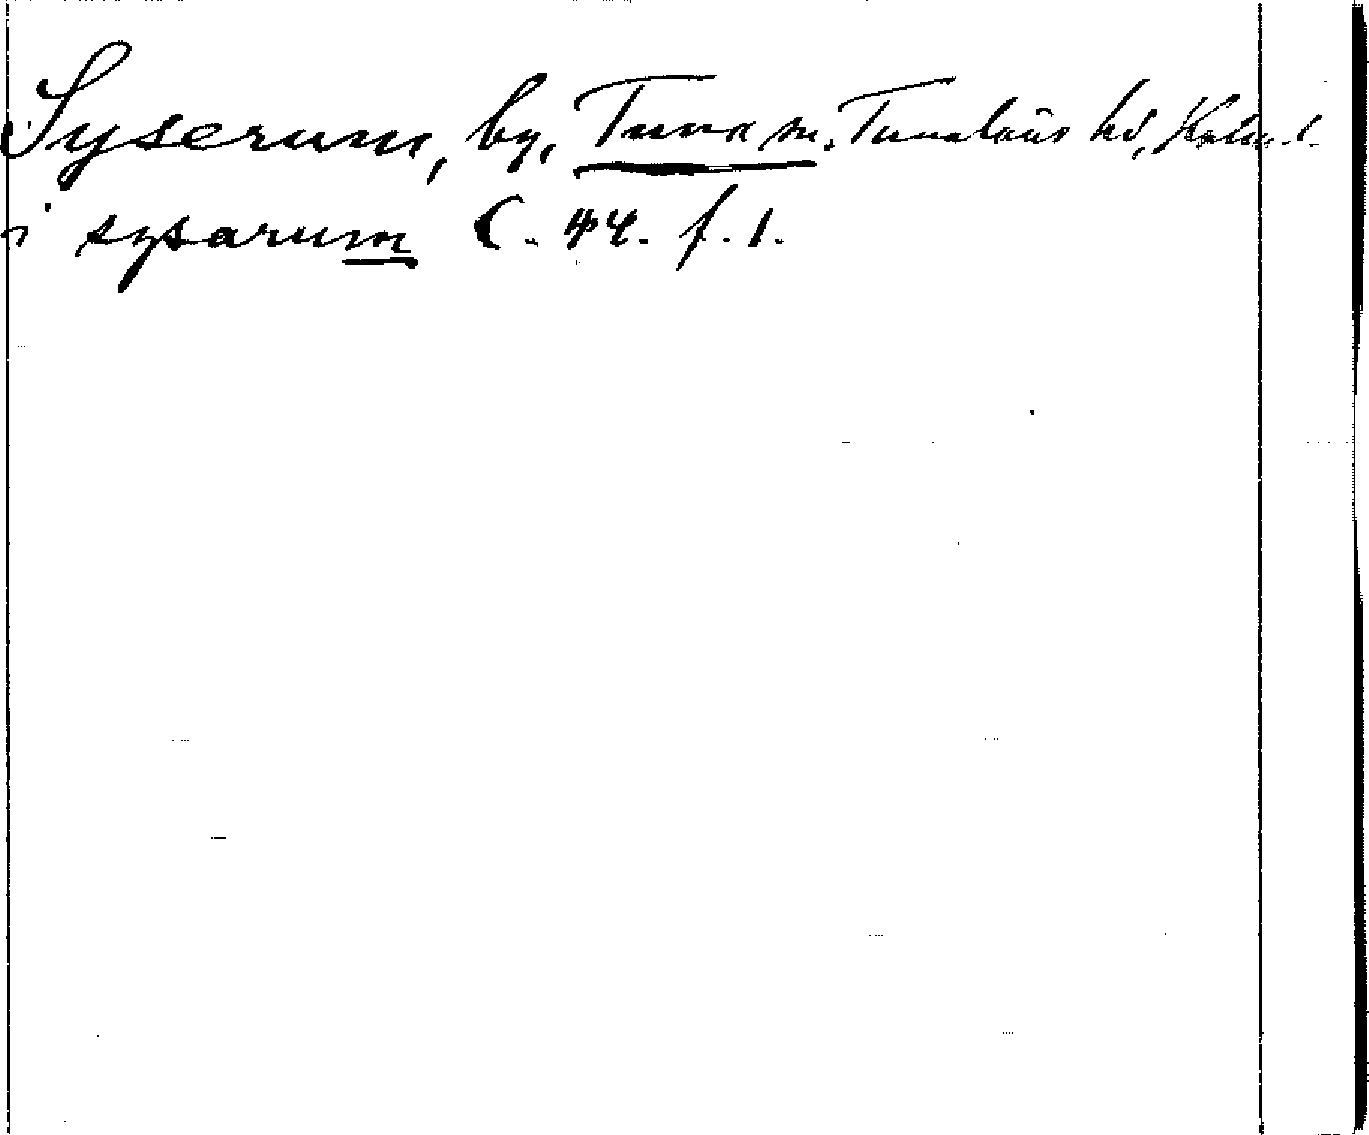 Syserum, by, Tuna sn. Tunaläns hd, Kalm. l.
i sysarum C. 44. f. 1.